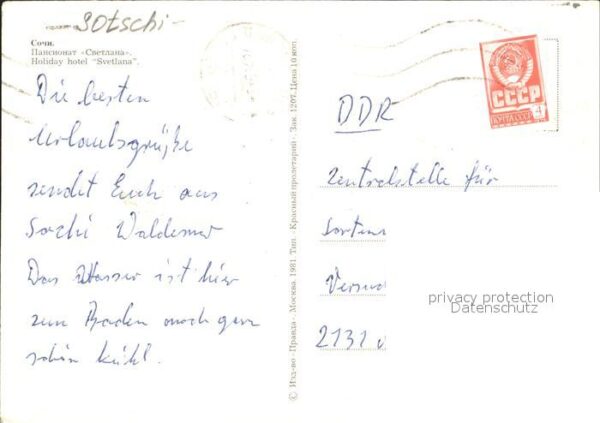 Sotschi-
Сочи.
Пансионат «Светлана».
Holiday hotel "Svetlana".
Die besten
Urlaubsgrüße
sendet Euch aus
Sochi Waldemar
Das Wasser ist hier
zum Baden noch ganz
schön kühl.
© Изд-во «Правда». Москва. 1981. Тип. «Красный пролетарий». Зак. 1297. Цена 10 коп.
СССР
ПОЧТА СССР
4
DDR
Zentralstelle für
Sorten
Versu
2131
privacy protection
Datenschutz